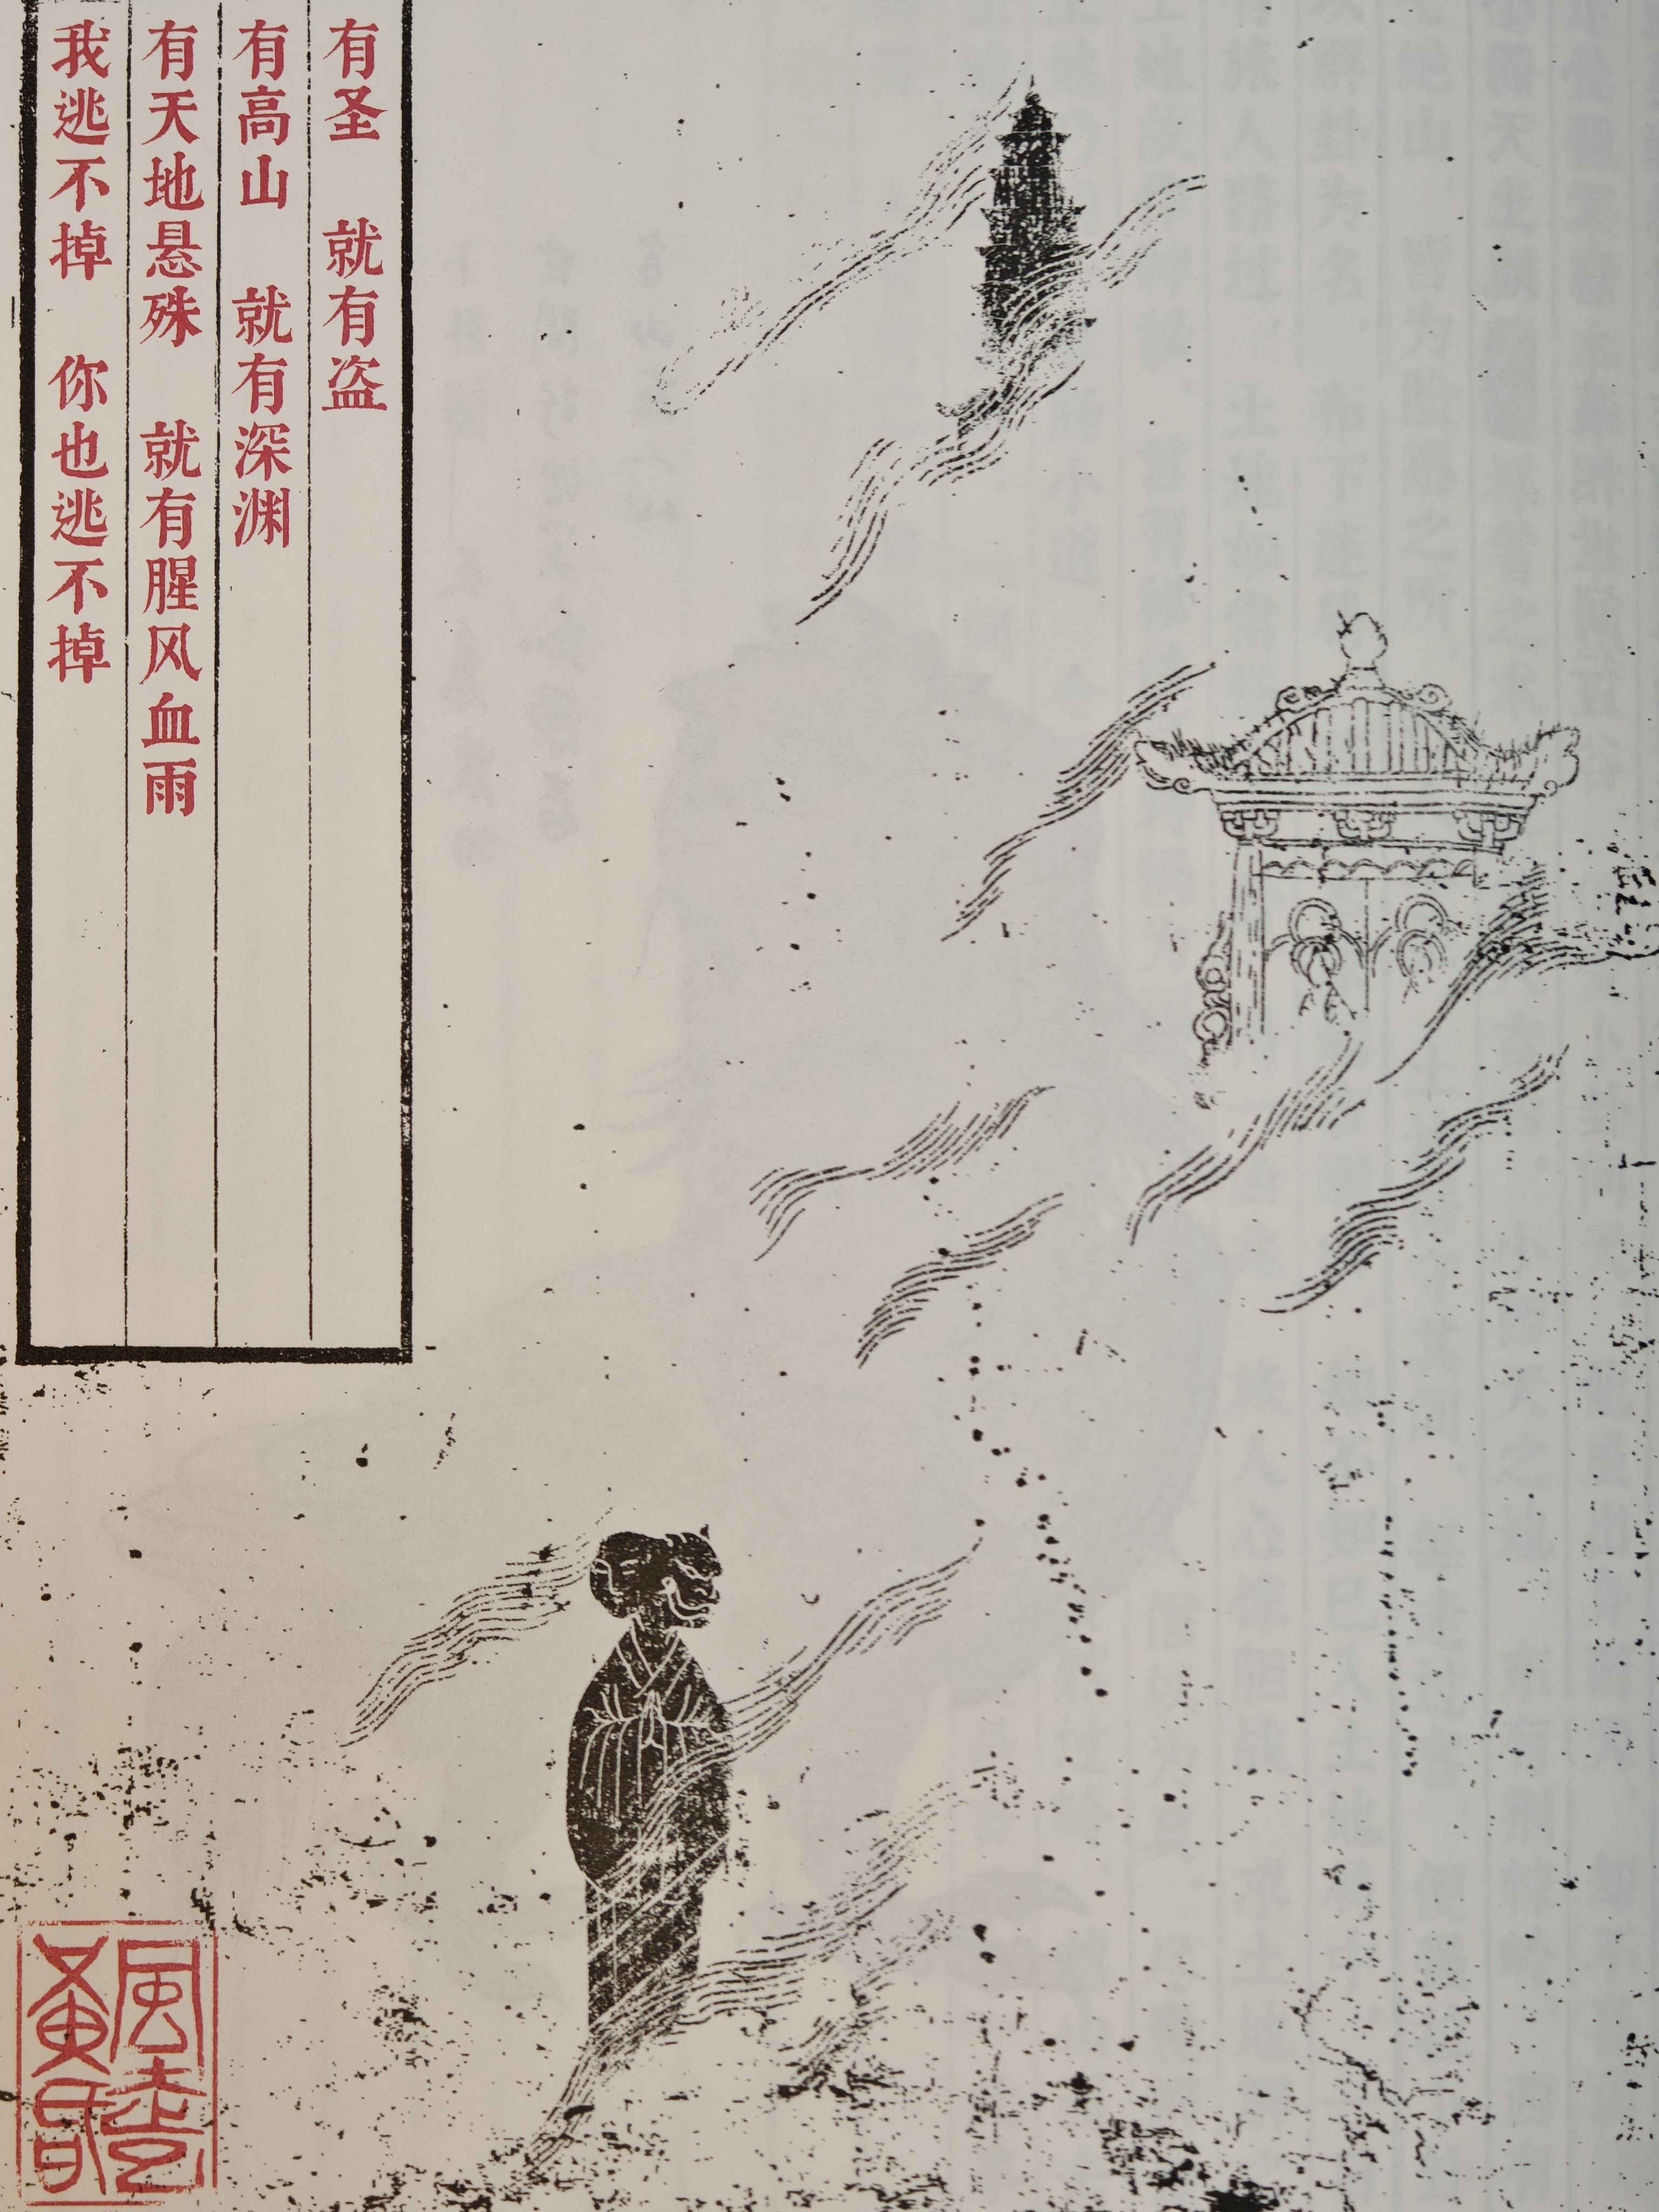 有圣　就有盗
有高山　就有深渊
有天地悬殊　就有腥风血雨
我逃不掉　你也逃不掉
風
黃昏